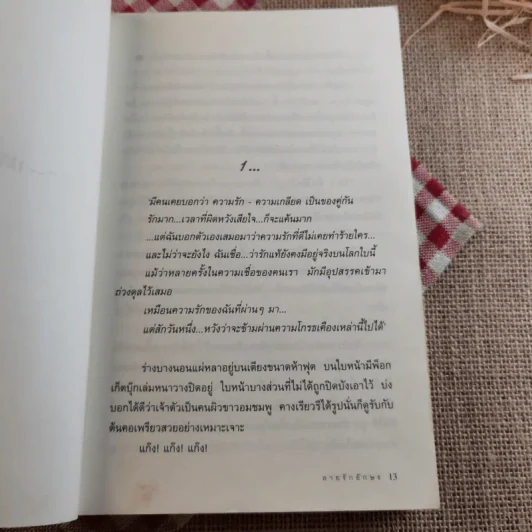 1...
'มีคนเคยบอกว่า ความรัก - ความเกลียด เป็นของคู่กัน
รักมาก...เวลาที่ผิดหวังเสียใจ...ก็จะแค้นมาก
...แต่ฉันบอกตัวเองเสมอมาว่าความรักที่ดีไม่เคยทำร้ายใคร...
และไม่ว่าจะยังไง ฉันเชื่อ...ว่ารักแท้ยังคงมีอยู่จริงบนโลกใบนี้
แม้ว่าหลายครั้งในความเชื่อของคนเรา มักมีอุปสรรคเข้ามา
ถ่วงดุลไว้เสมอ
เหมือนความรักของฉันที่ผ่านๆ มา...
แต่สักวันหนึ่ง...หวังว่าจะข้ามผ่านความโกรธเคืองเหล่านี้ไปได้'
ร่างบางนอนแผ่หลาอยู่บนเตียงขนาดห้าฟุต บนใบหน้ามีพ็อก
เก็ตบุ๊กเล่มหนาวางปิดอยู่ ใบหน้าบางส่วนที่ไม่ได้ถูกปิดบังเอาไว้ บ่ง
บอกได้ดีว่าเจ้าตัวเป็นคนผิวขาวอมชมพู คางเรียวรีได้รูปนั่นก็ดูรับกับ
ต้นคอเพรียวสวยอย่างเหมาะเจาะ
แก๊ง! แก๊ง! แก๊ง!
13